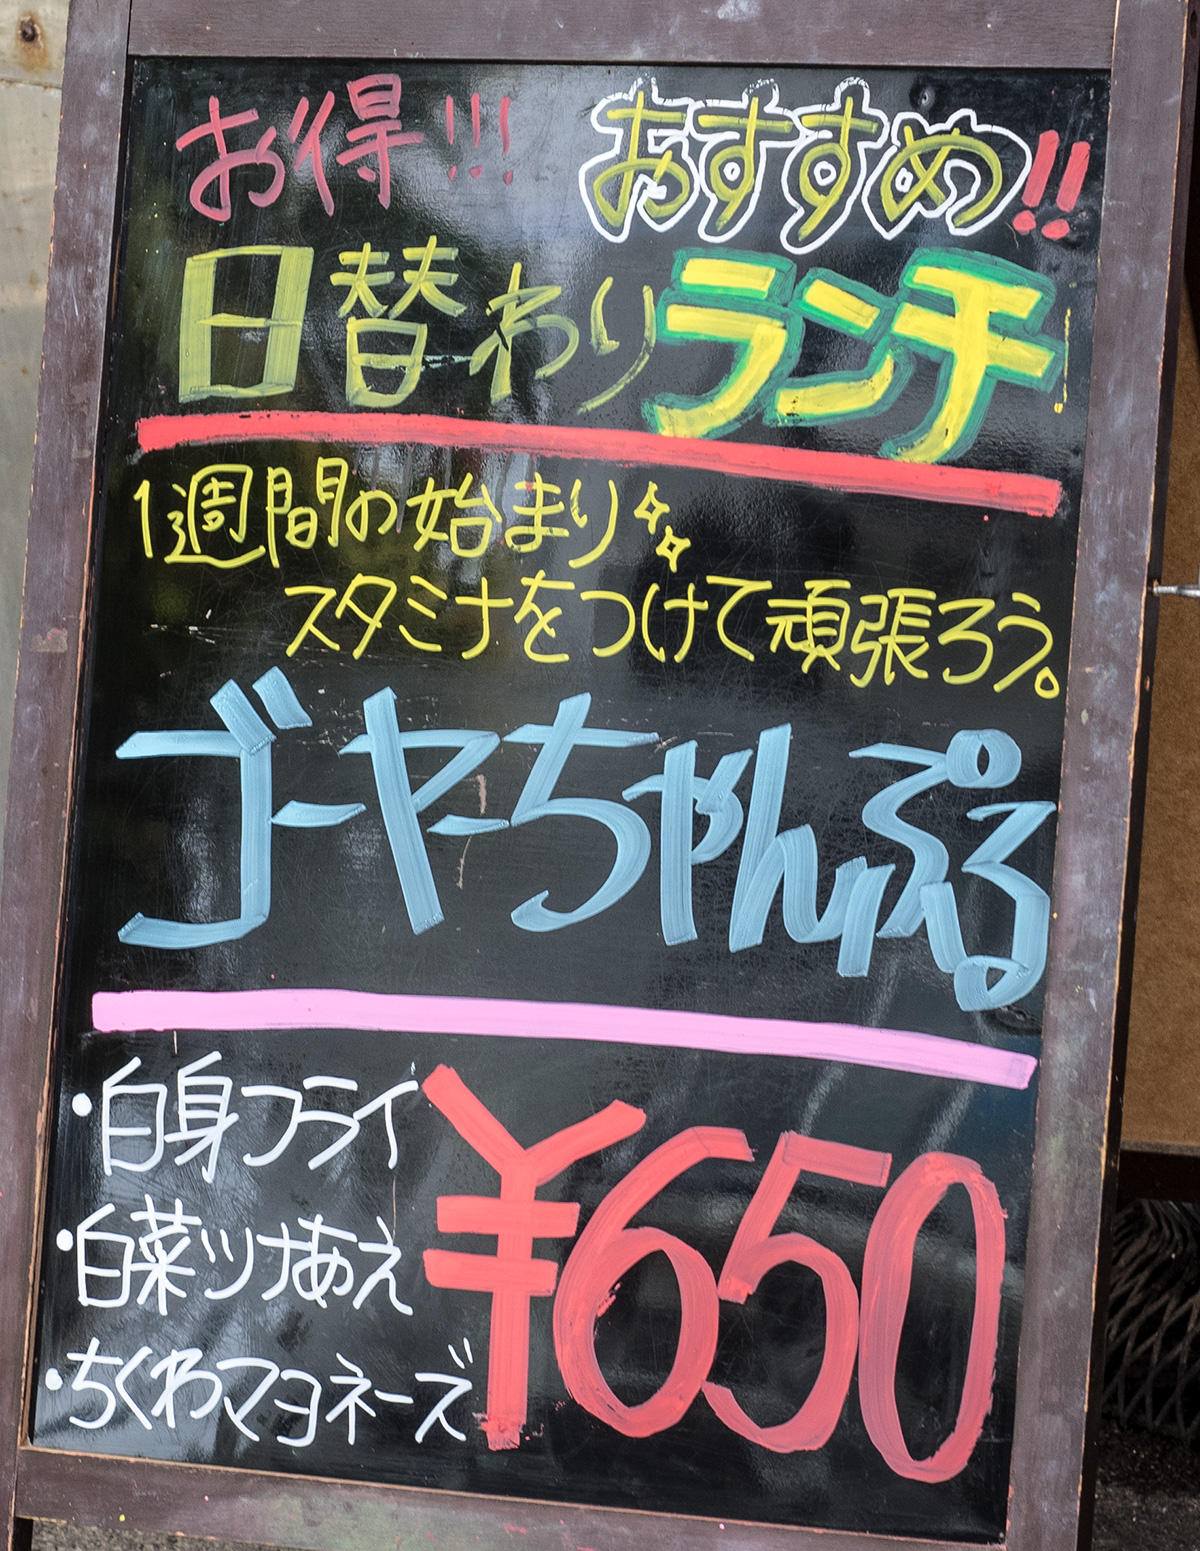 お得!!! おすすめ!!
日替わりランチ
1週間の始まり
スタミナをつけて頑張ろう。
ゴーヤちゃんぷる
・白身フライ
・白菜ツナあえ
・ちくわマヨネーズ
¥650